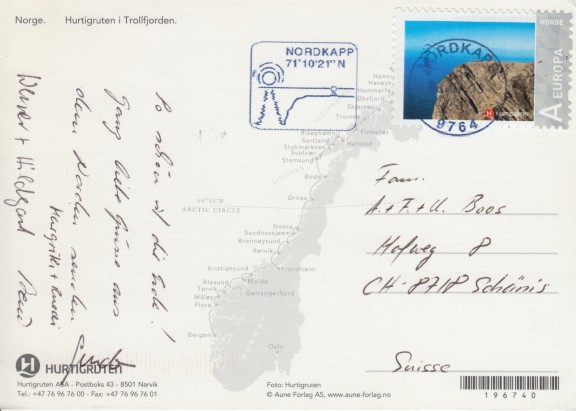 Norge. Hurtigruten i Trollfjorden.
NORDKAPP
71°10'21"N
NORDKAPP
9764
NORDE
A EUROPA
Hurtigruten
So schön ist die Erde!
Ganz liebe Grüsse aus
dem Norden senden
Margrith + Ruedi
Werner + Hildegard
Fam.
A.+F.+U. Boos
Hofweg 8
CH-8718 Schänis
Suisse
Honningsvåg
Havøysund
Hammerfest
Øksfjord
Skjervøy
Tromsø
Finnsnes
Risøyhamn
Harstad
Sortland
Stokmarknes
Svolvær
Stamsund
LOFOTEN
Bodø
Ørnes
66°33'N
ARCTIC CIRCLE
Nesna
Sandnessjøen
Brønnøysund
Rørvik
Kristiansund
Trondheim
Ålesund
Molde
Torvik
Geirangerfjord
Måløy
Florø
Bergen
Oslo
HURTIGRUTEN
Hurtigruten ASA - Postboks 43 - 8501 Narvik
Tel.: +47 76 96 76 00 - Fax: +47 76 96 76 01
Foto: Hurtigruten
© Aune Forlag AS, www.aune-forlag.no
196740